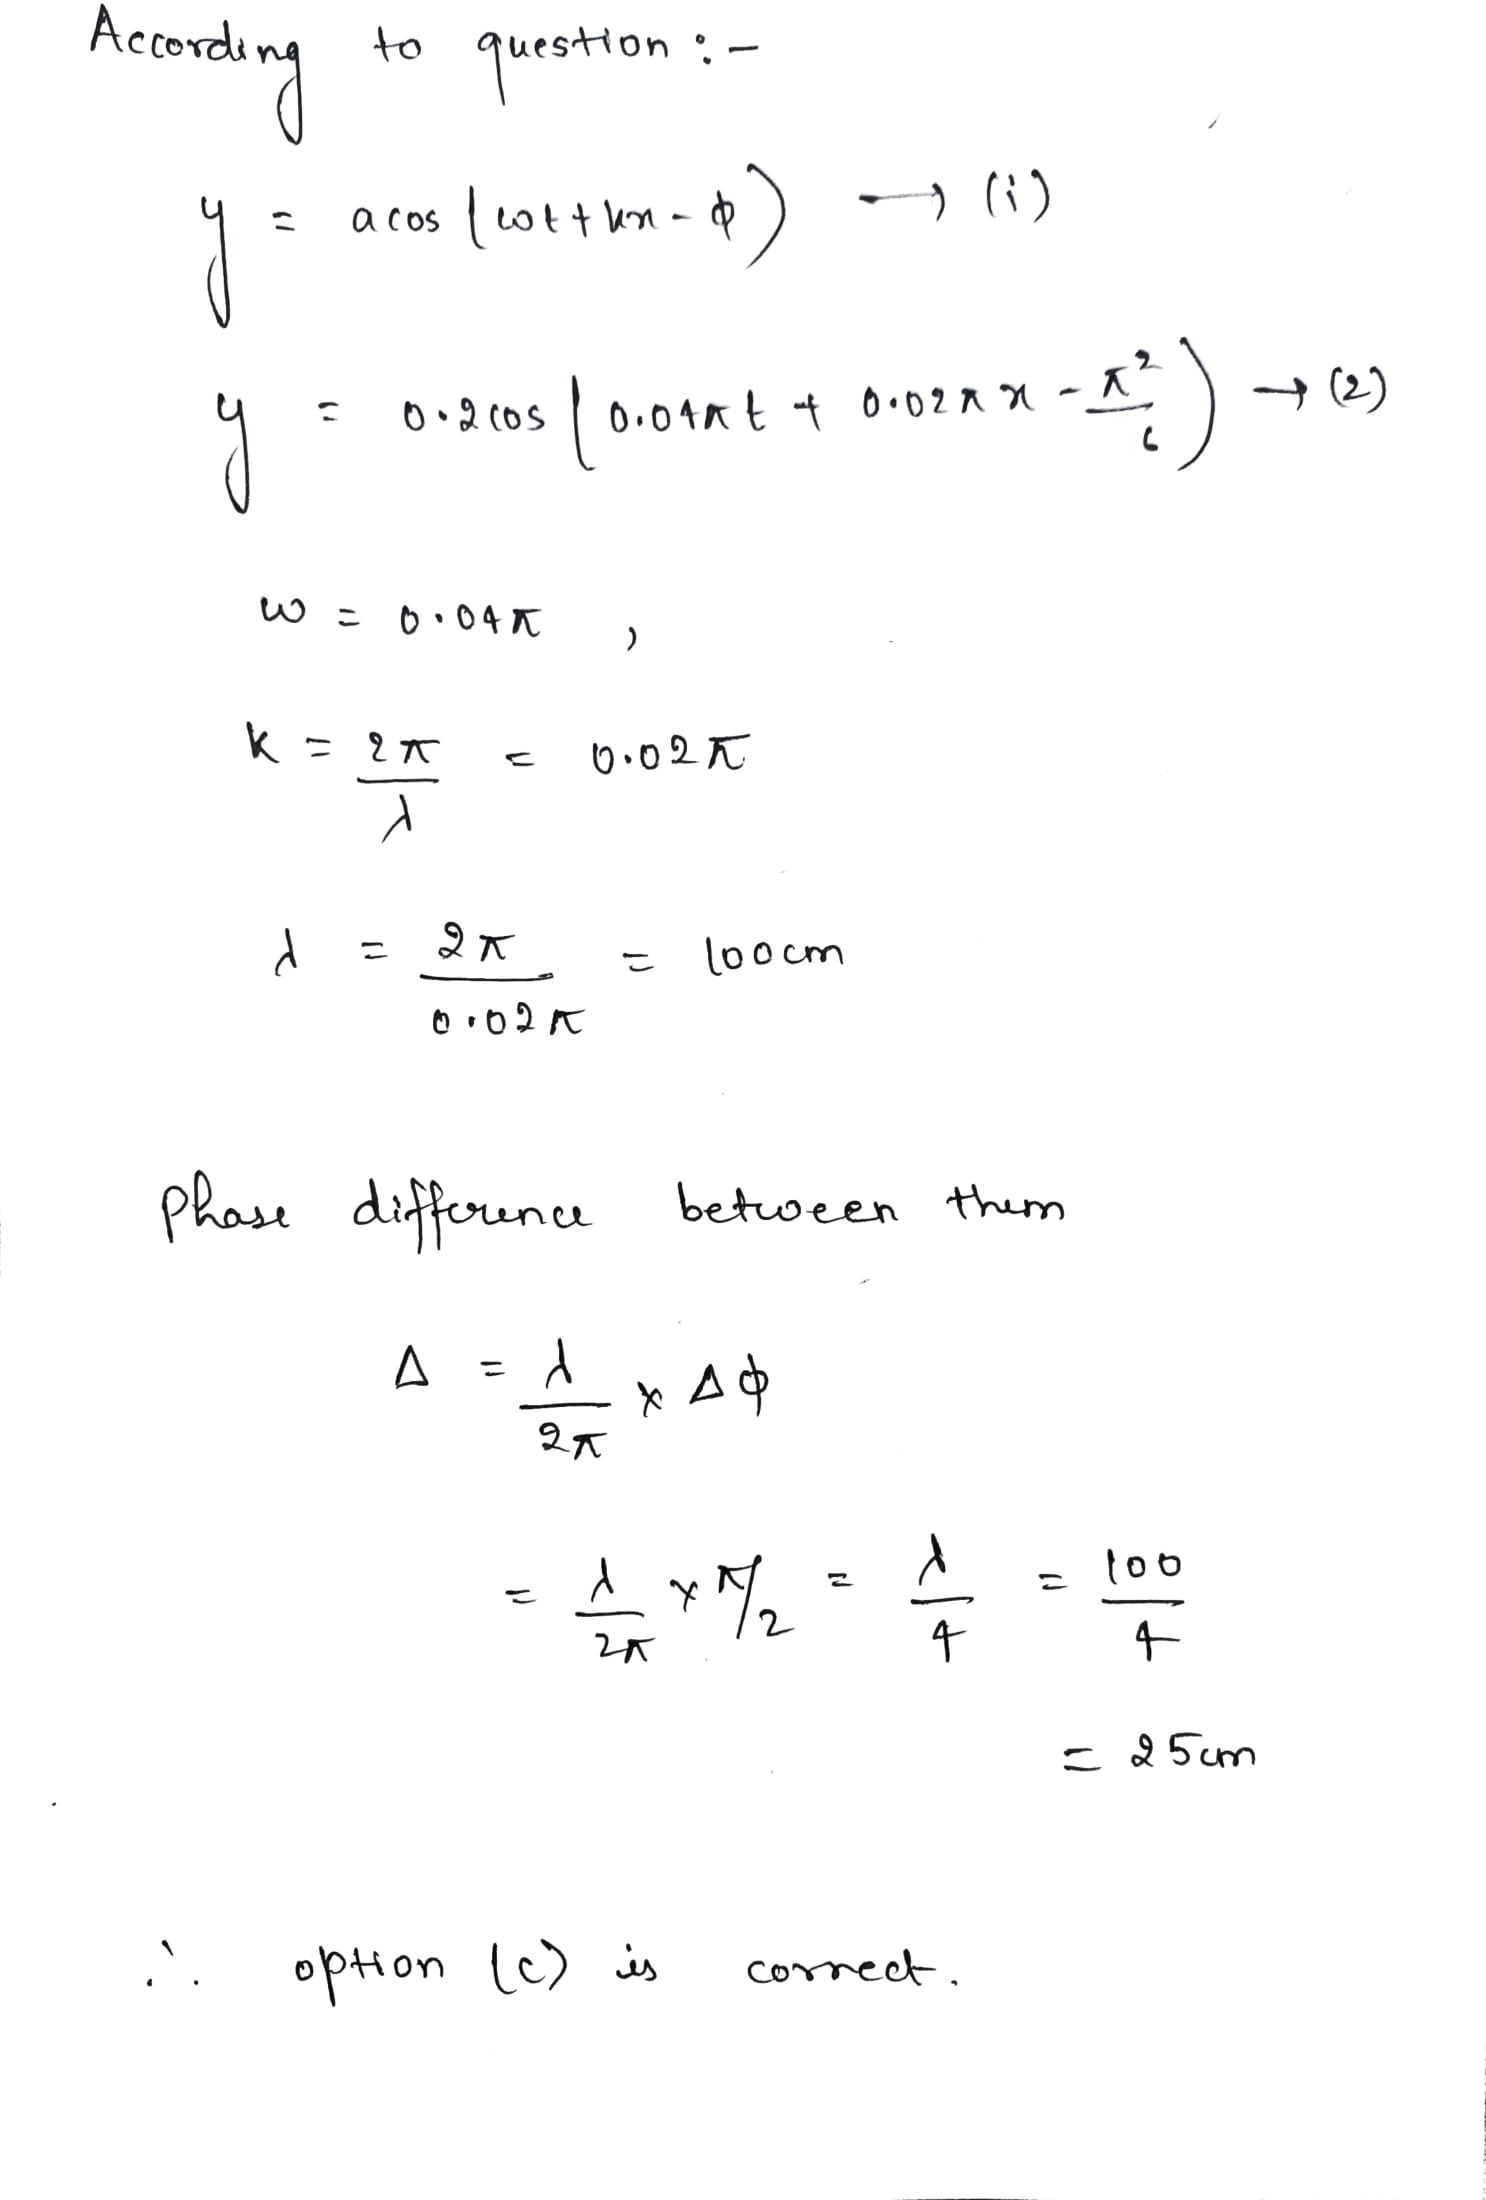 According to question :-
y = a cos (ωt + kx - φ) → (i)
y = 0.2 cos (0.04πt + 0.02πx - π²/6) → (2)
ω = 0.04π ,
k = 2π/λ = 0.02π
λ = 2π/0.02π = 100cm
Phase difference between them
Δ = λ/2π × Δφ
= λ/2π × π/2 = λ/4 = 100/4
= 25cm
∴ option (c) is correct.